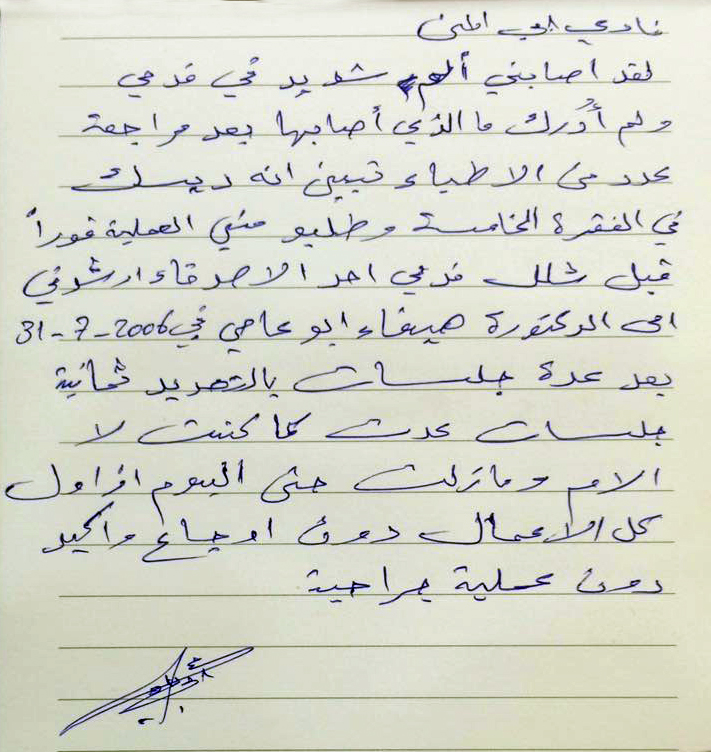 فادي ابي المنى
لقد اصابني ألم شديد في قدمي
ولم أدرك ما الذي أصابها بعد مراجعة
عدد من الاطباء تبين انه ديسك
في الفقرة الخامسة وطلبو مني العملية فوراً
قبل شلل قدمي احد الاصدقاء ارشدني
الى الدكتورة هيفاء ابو عاصي في 2006-7-31
بعد عدة جلسات بالتحديد ثمانية
جلسات عدت كما كنت لا
الام ومازلت حتى اليوم ازاول
كل الاعمال دون اوجاع واكيد
دون عملية جراحية